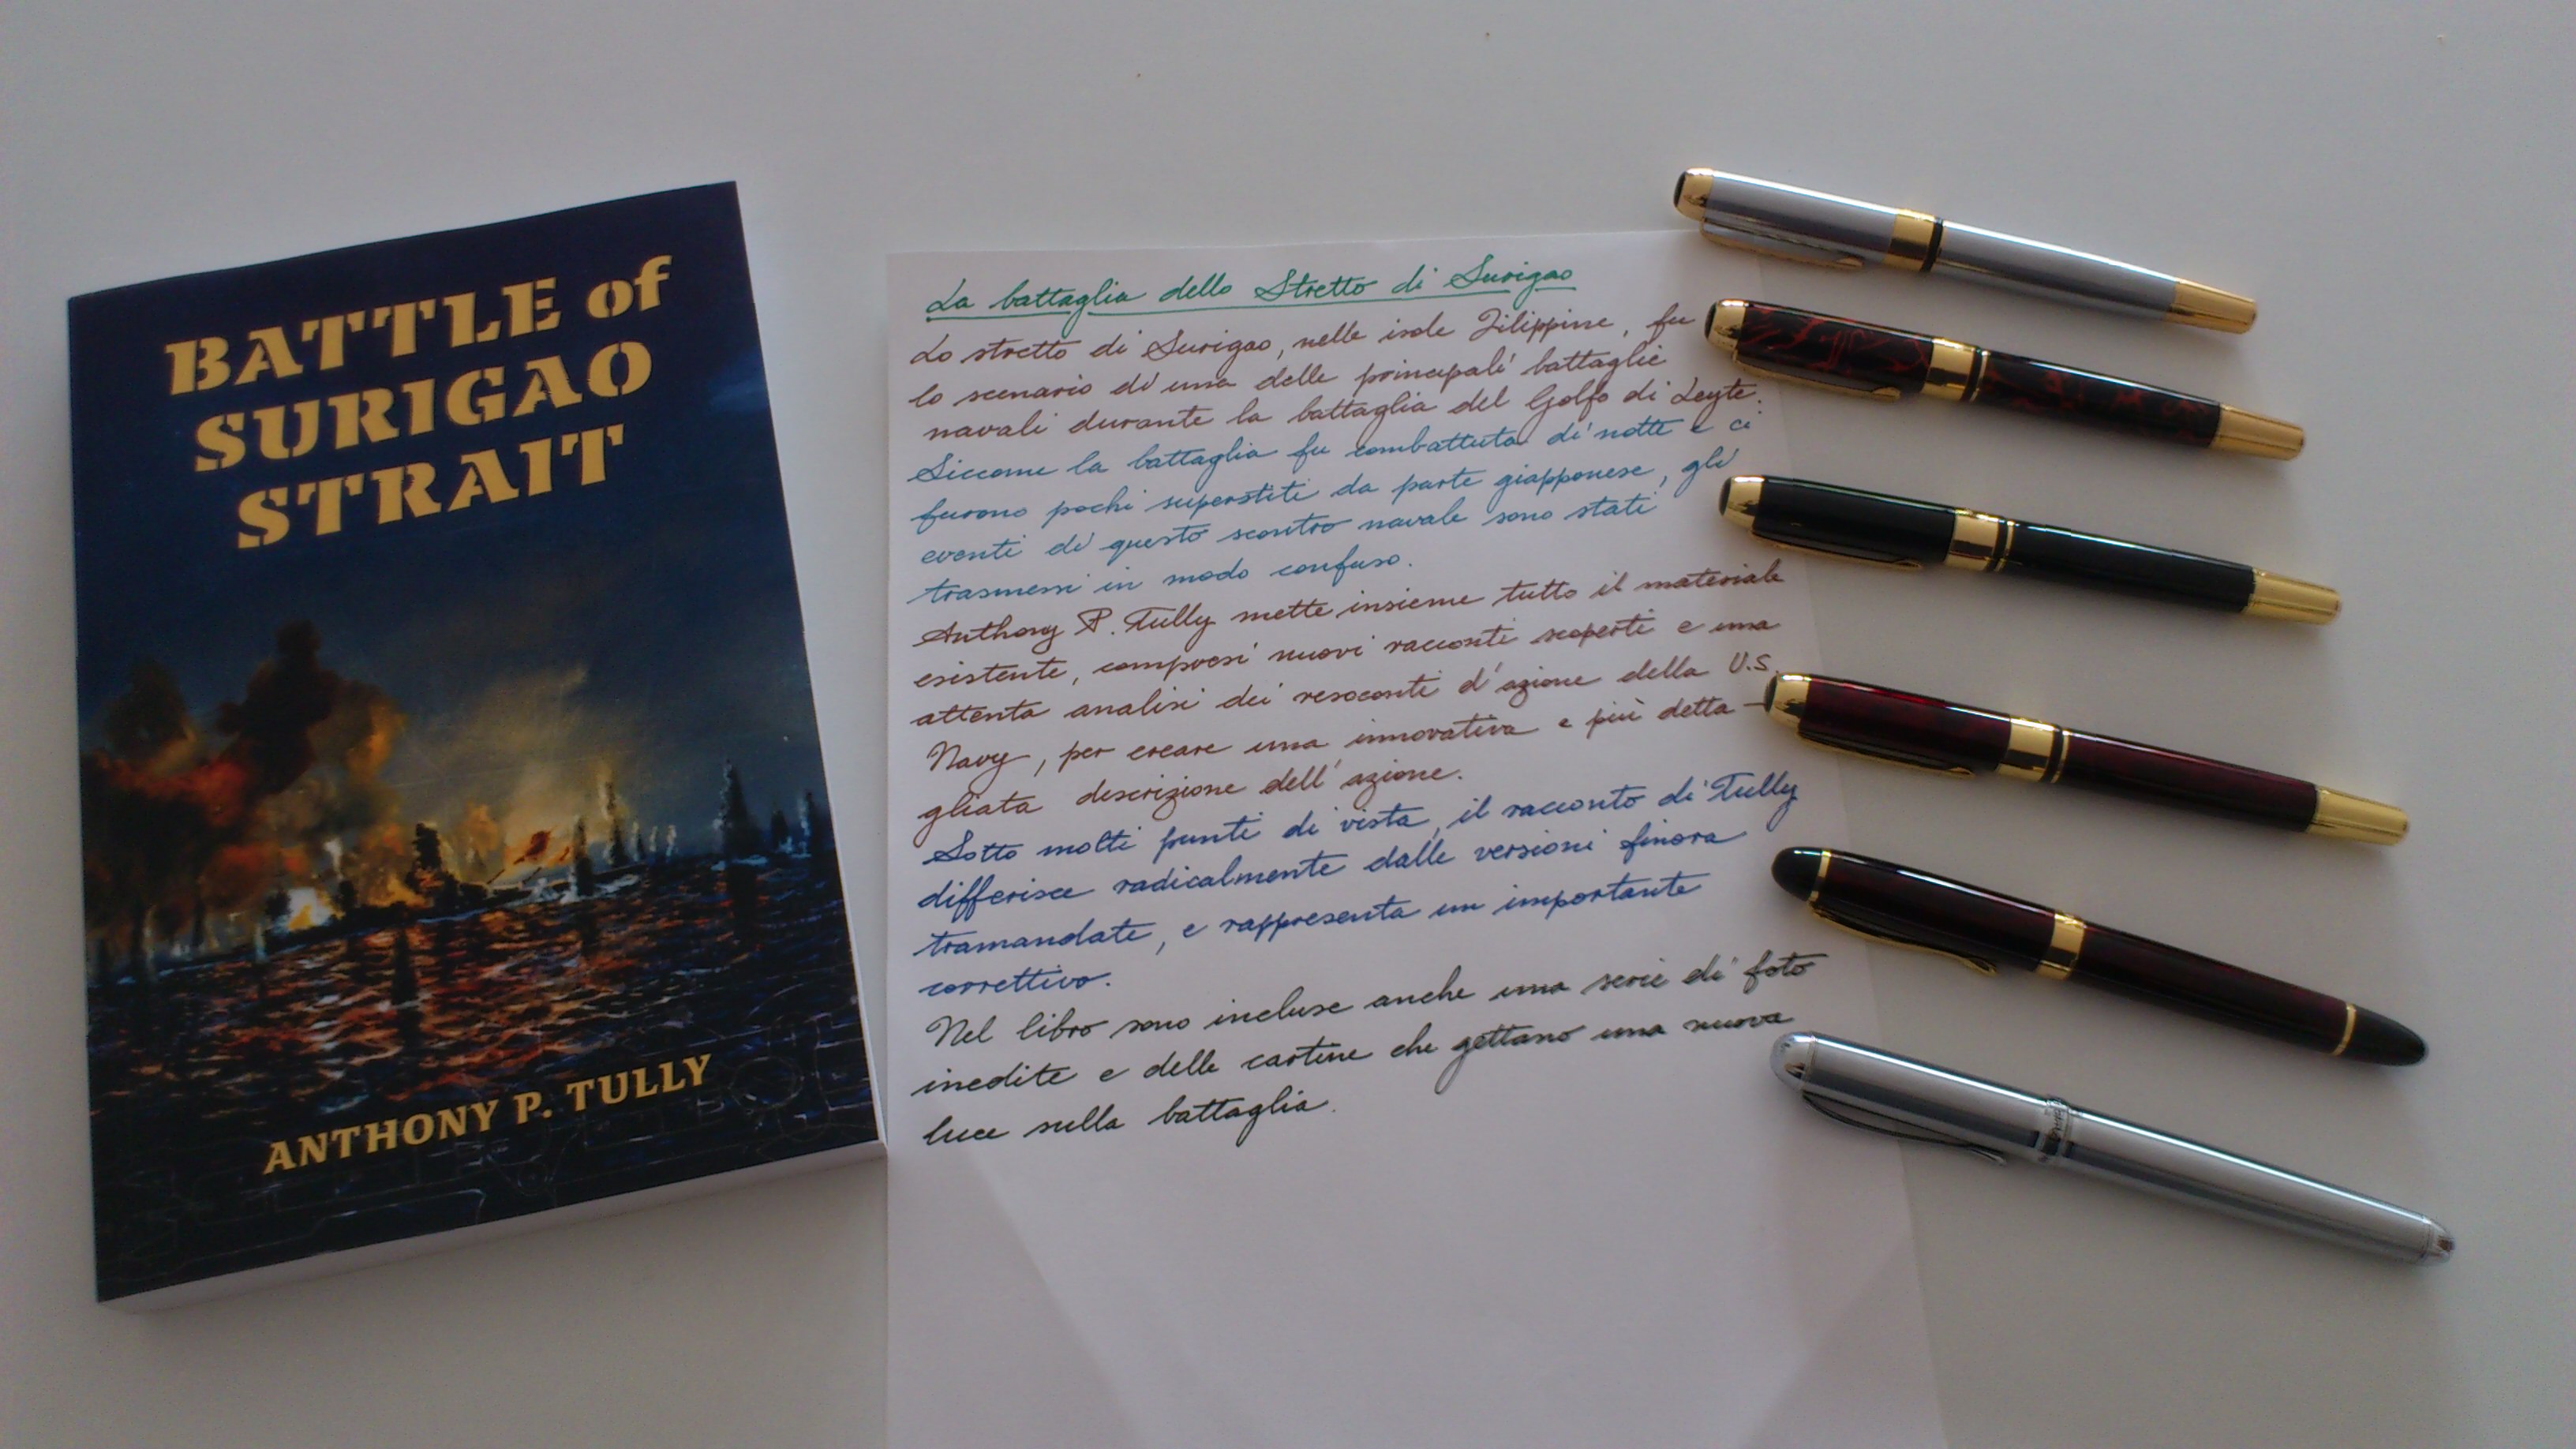 BATTLE of
SURIGAO
STRAIT
ANTHONY P. TULLY
La battaglia dello Stretto di Surigao
Lo stretto di Surigao, nelle isole Filippine, fu
lo scenario di una delle principali battaglie
navali durante la battaglia del Golfo di Leyte.
Siccome la battaglia fu combattuta di notte e ci
furono pochi superstiti da parte giapponese, gli
eventi di questo scontro navale sono stati
trasmessi in modo confuso.
Anthony P. Tully mette insieme tutto il materiale
esistente, compresi nuovi racconti scoperti e una
attenta analisi dei resoconti d'azione della U.S.
Navy, per creare una innovativa e più detta-
gliata descrizione dell'azione.
Sotto molti punti di vista, il racconto di Tully
differisce radicalmente dalle versioni finora
tramandate, e rappresenta un importante
correttivo.
Nel libro sono incluse anche una serie di foto
inedite e delle cartine che gettano una nuova
luce sulla battaglia.